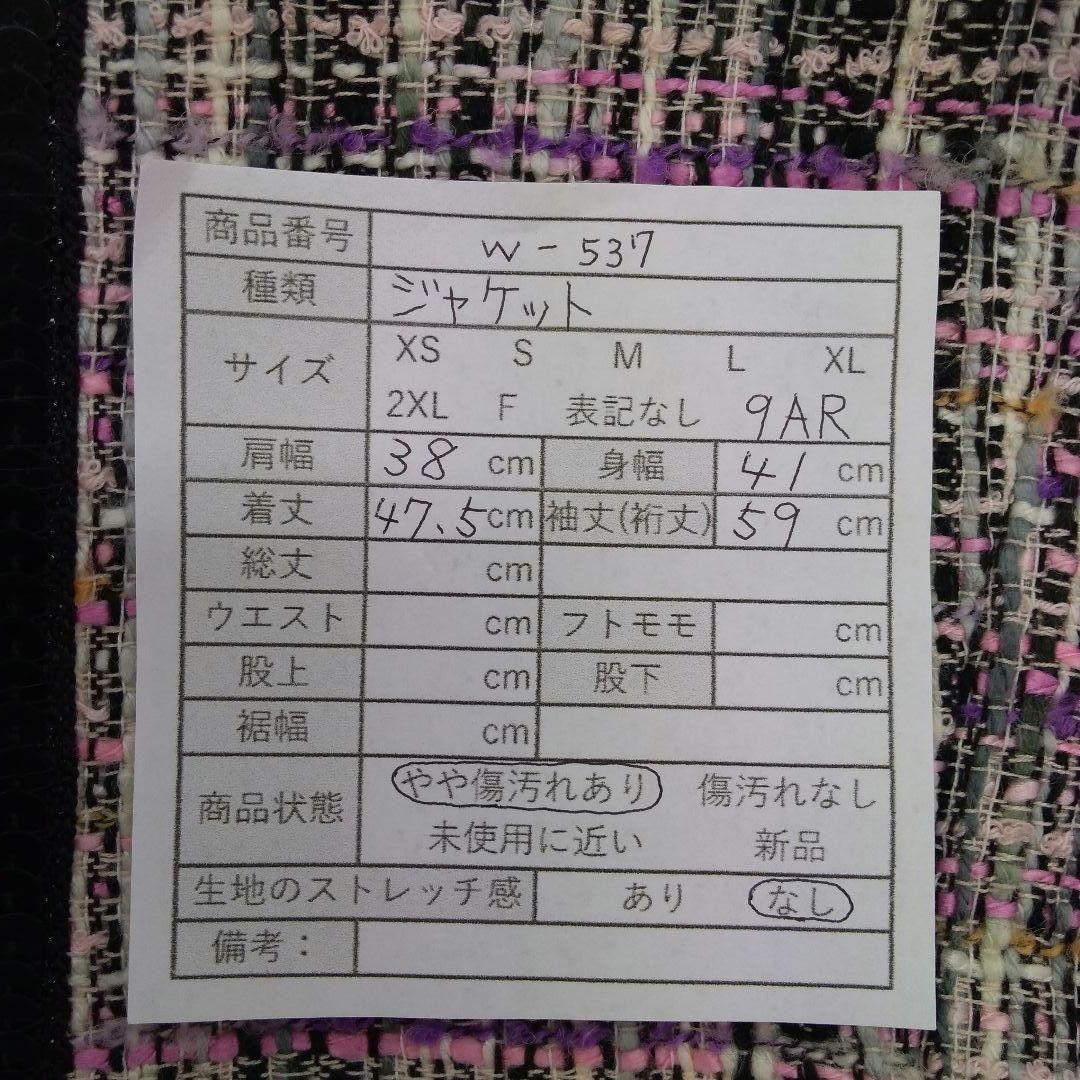 商品番号 W-537
種類 ジャケット
サイズ XS S M L XL
2XL F 表記なし 9AR
肩幅 38 cm 身幅 41 cm
着丈 47.5cm 袖丈(裄丈) 59 cm
総丈 cm
ウエスト cm フトモモ cm
股上 cm 股下 cm
裾幅 cm
商品状態 やや傷汚れあり 傷汚れなし
未使用に近い 新品
生地のストレッチ感 あり なし
備考：